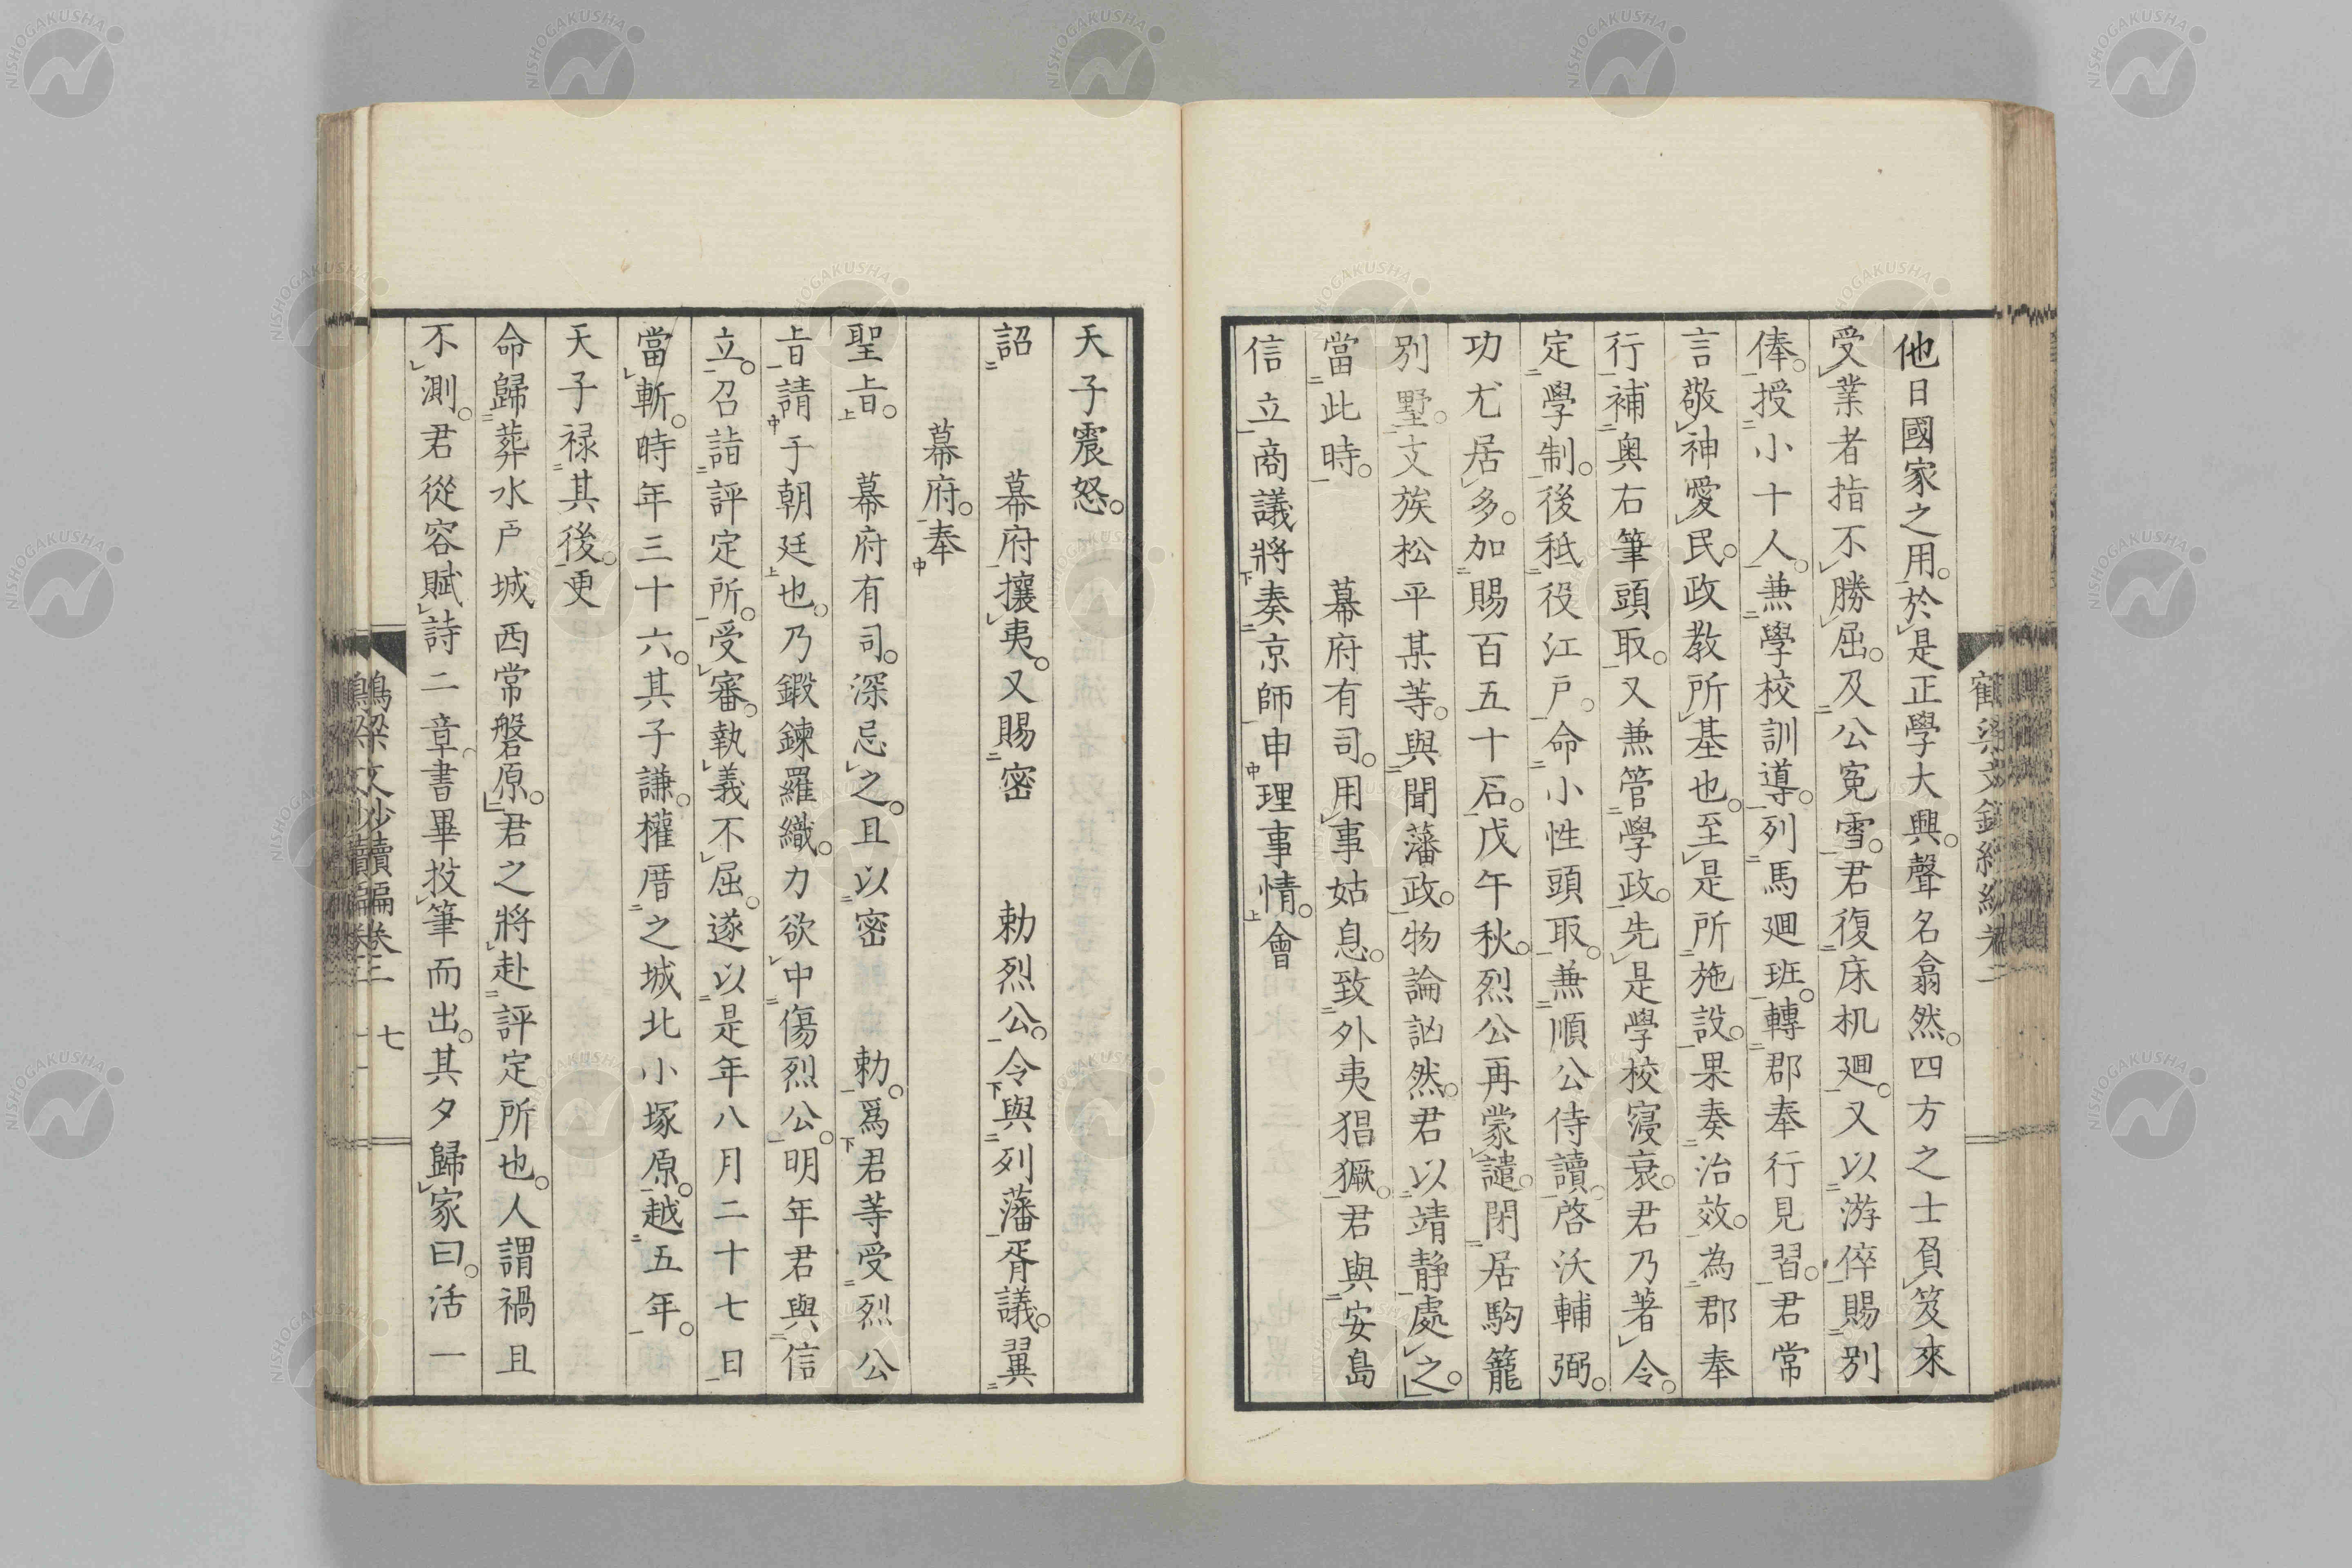 他日國家之用。於是正學大興。聲名翕然。四方之士負笈來
受業者指不勝屈。及公冤雪。君復床机廻。又以游倅賜別
俸。授小十人。兼學校訓導。列馬廻班。轉郡奉行見習。君常
言敬神愛民。政教所基也。至是所施設。果奏治效。為郡奉
行補奥右筆頭取。又兼管學政。先是學校寖衰。君乃著令。
定學制。後祗役江戸。命小性頭取。兼順公侍讀。啓沃輔弼。
功尤居多。加賜百五十石。戊午秋。烈公再蒙譴。閉居駒籠
別墅。支族松平某等。與聞藩政。物論訩然。君以靖静處之。
當此時。幕府有司。用事姑息。致外夷猖獗。君與安島
信立商議將奏京師申理事情。會
天子震怒。
詔幕府攘夷。又賜密勅烈公。令與列藩胥議。翼
幕府。奉
聖旨。幕府有司。深忌之。且以密勅。爲君等受烈公
旨請于朝廷也。乃鍛鍊羅織。力欲中傷烈公。明年君與信
立。召詣評定所。受審。執義不屈。遂以是年八月二十七日
當斬。時年三十六。其子謙。權厝之城北小塚原。越五年。
天子禄其後。更
命歸葬水戸城西常磐原。君之將赴評定所也。人謂禍且
不測。君從容賦詩二章。書畢投筆而出。其夕歸家曰。活一
鶴梁文鈔續編卷二 七